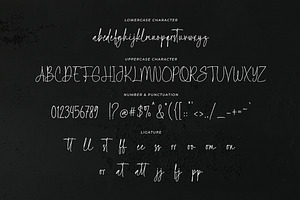 LOWERCASE CHARACTER
abcdefghijklmnopqrstuvwxyz
UPPERCASE CHARACTER
ABCDEFGHIJKLMNOPQRSTUVWXYZ
NUMBER & PUNCTUATION
0123456789
LIGATURE
tt ll st ff ee ss rr oo om on
or at att jj fj pp